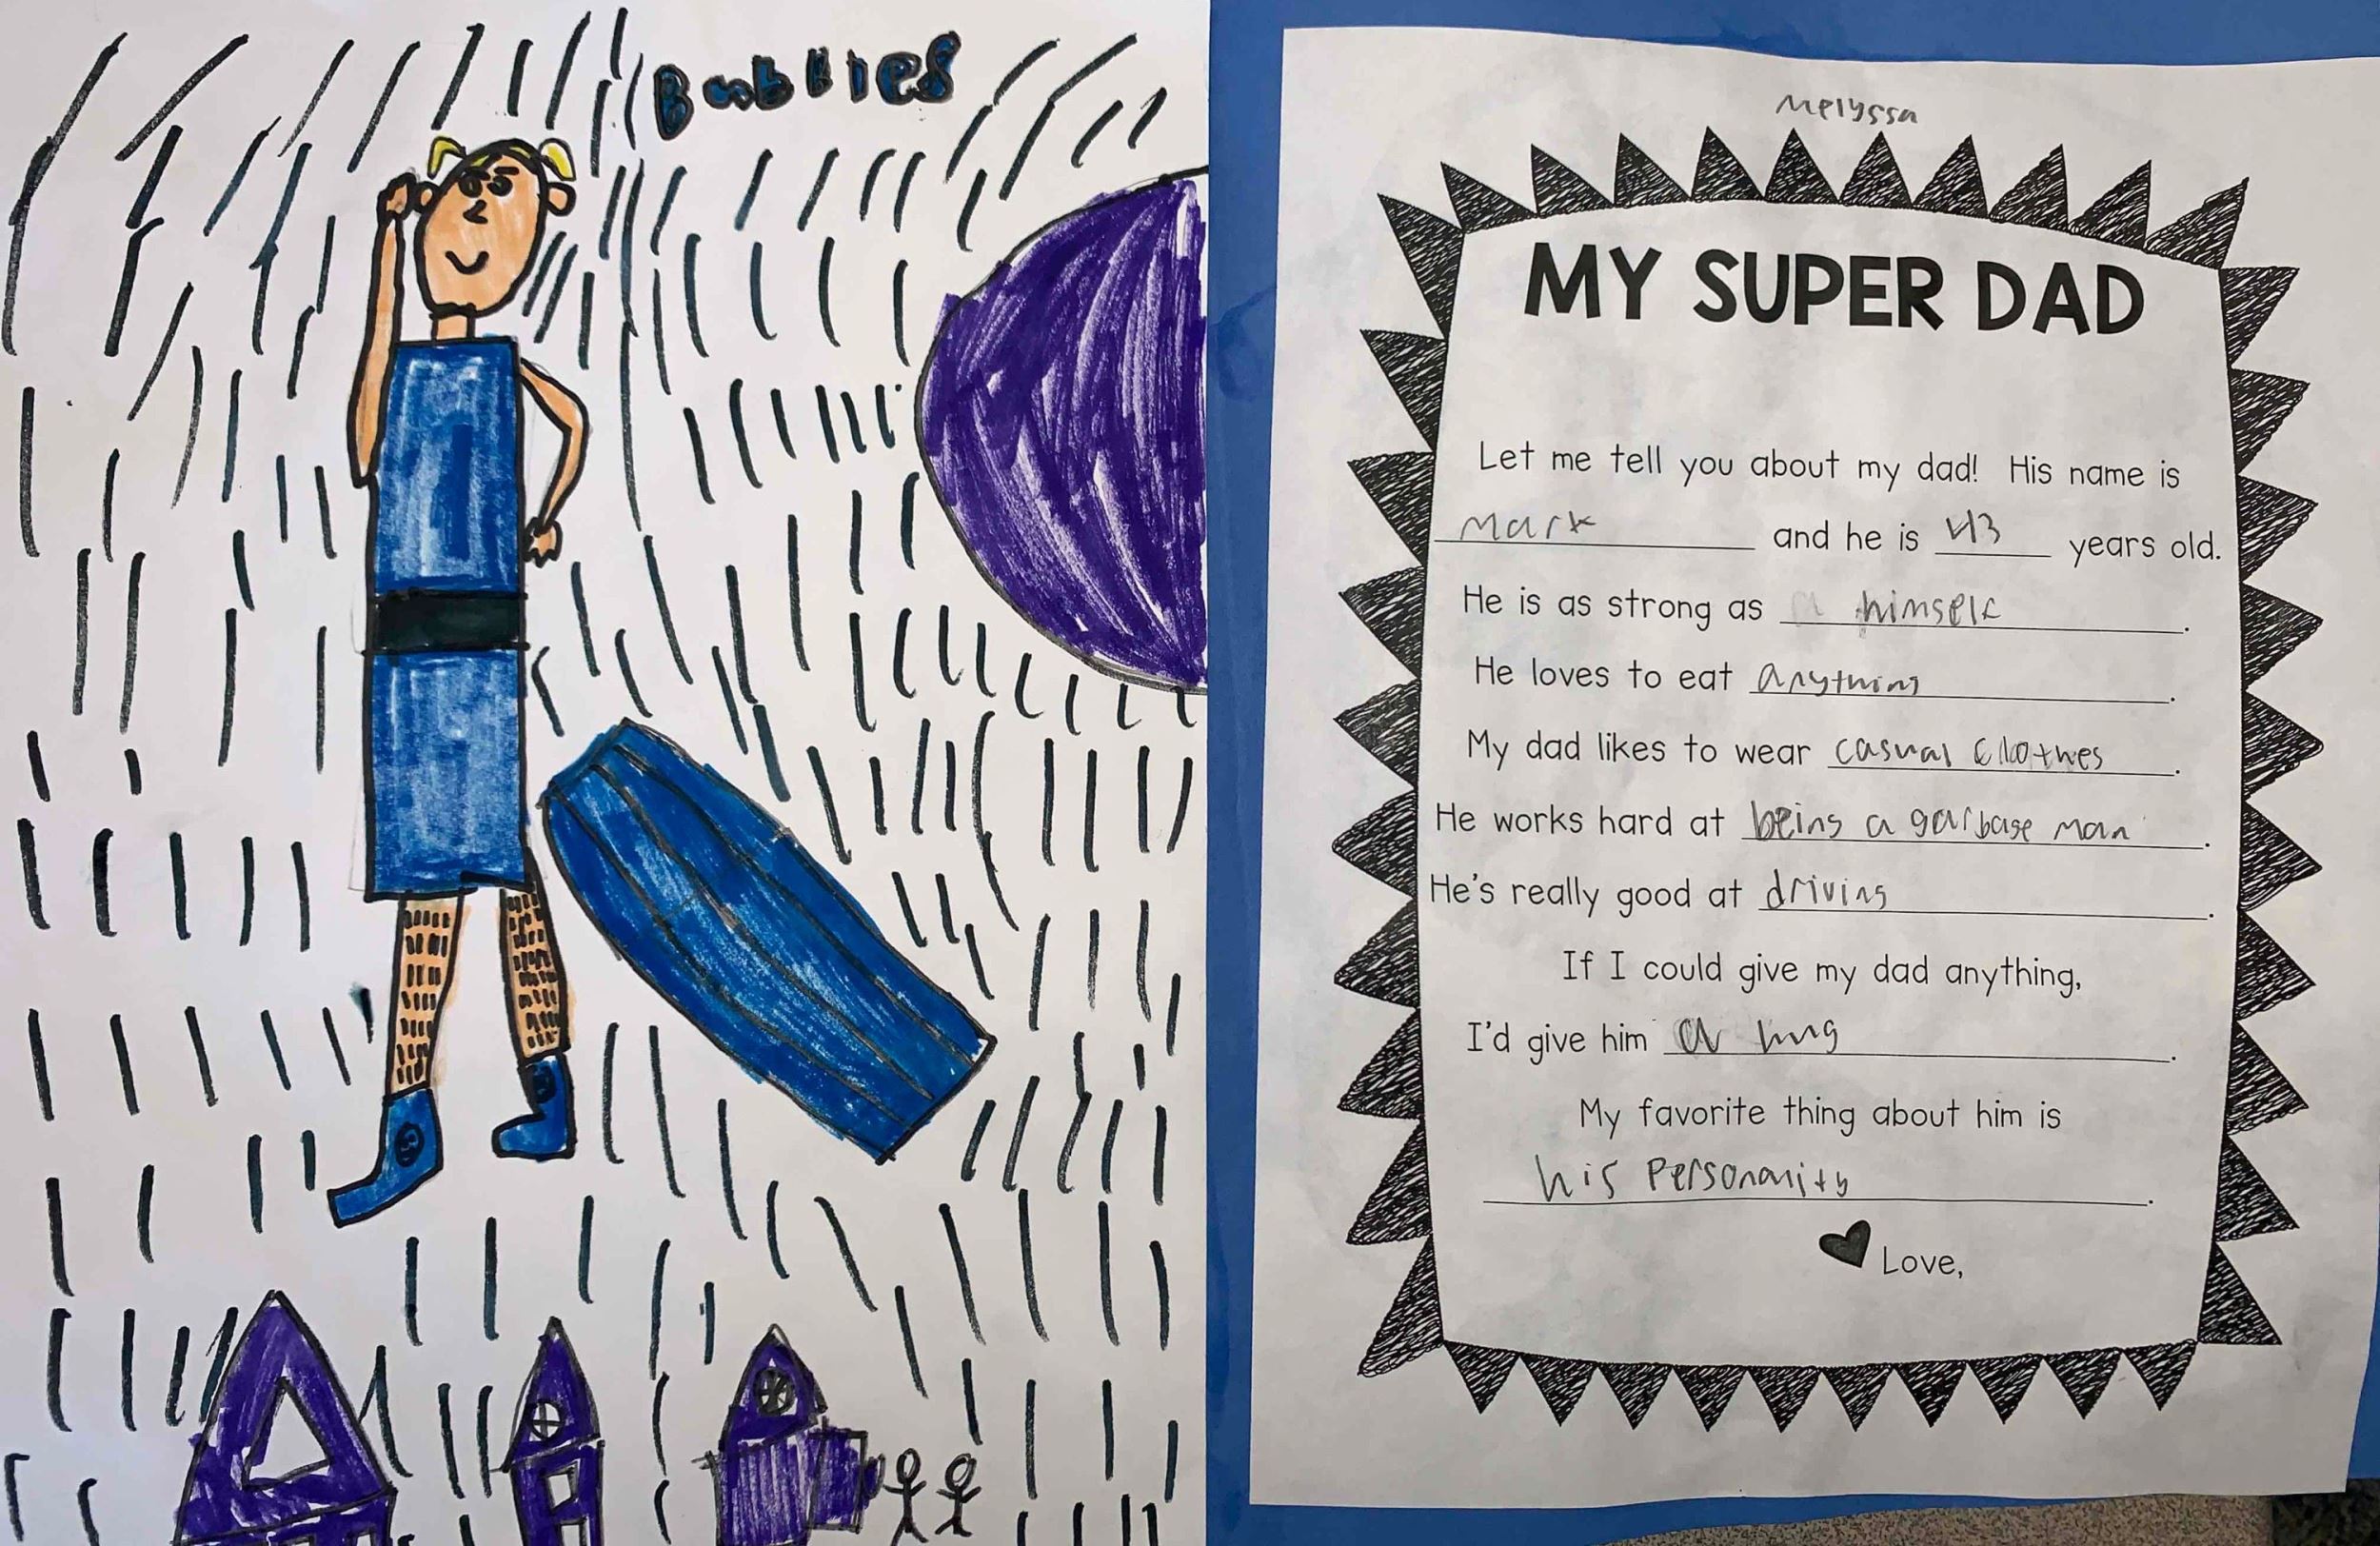 Bubbles
Melyssa
MY SUPER DAD
Let me tell you about my dad! His name is
Mark and he is 43 years old.
He is as strong as himself.
He loves to eat anything.
My dad likes to wear casual clothes.
He works hard at being a garbage man.
He's really good at driving.
If I could give my dad anything,
I'd give him a hug.
My favorite thing about him is
his Personality.
Love,